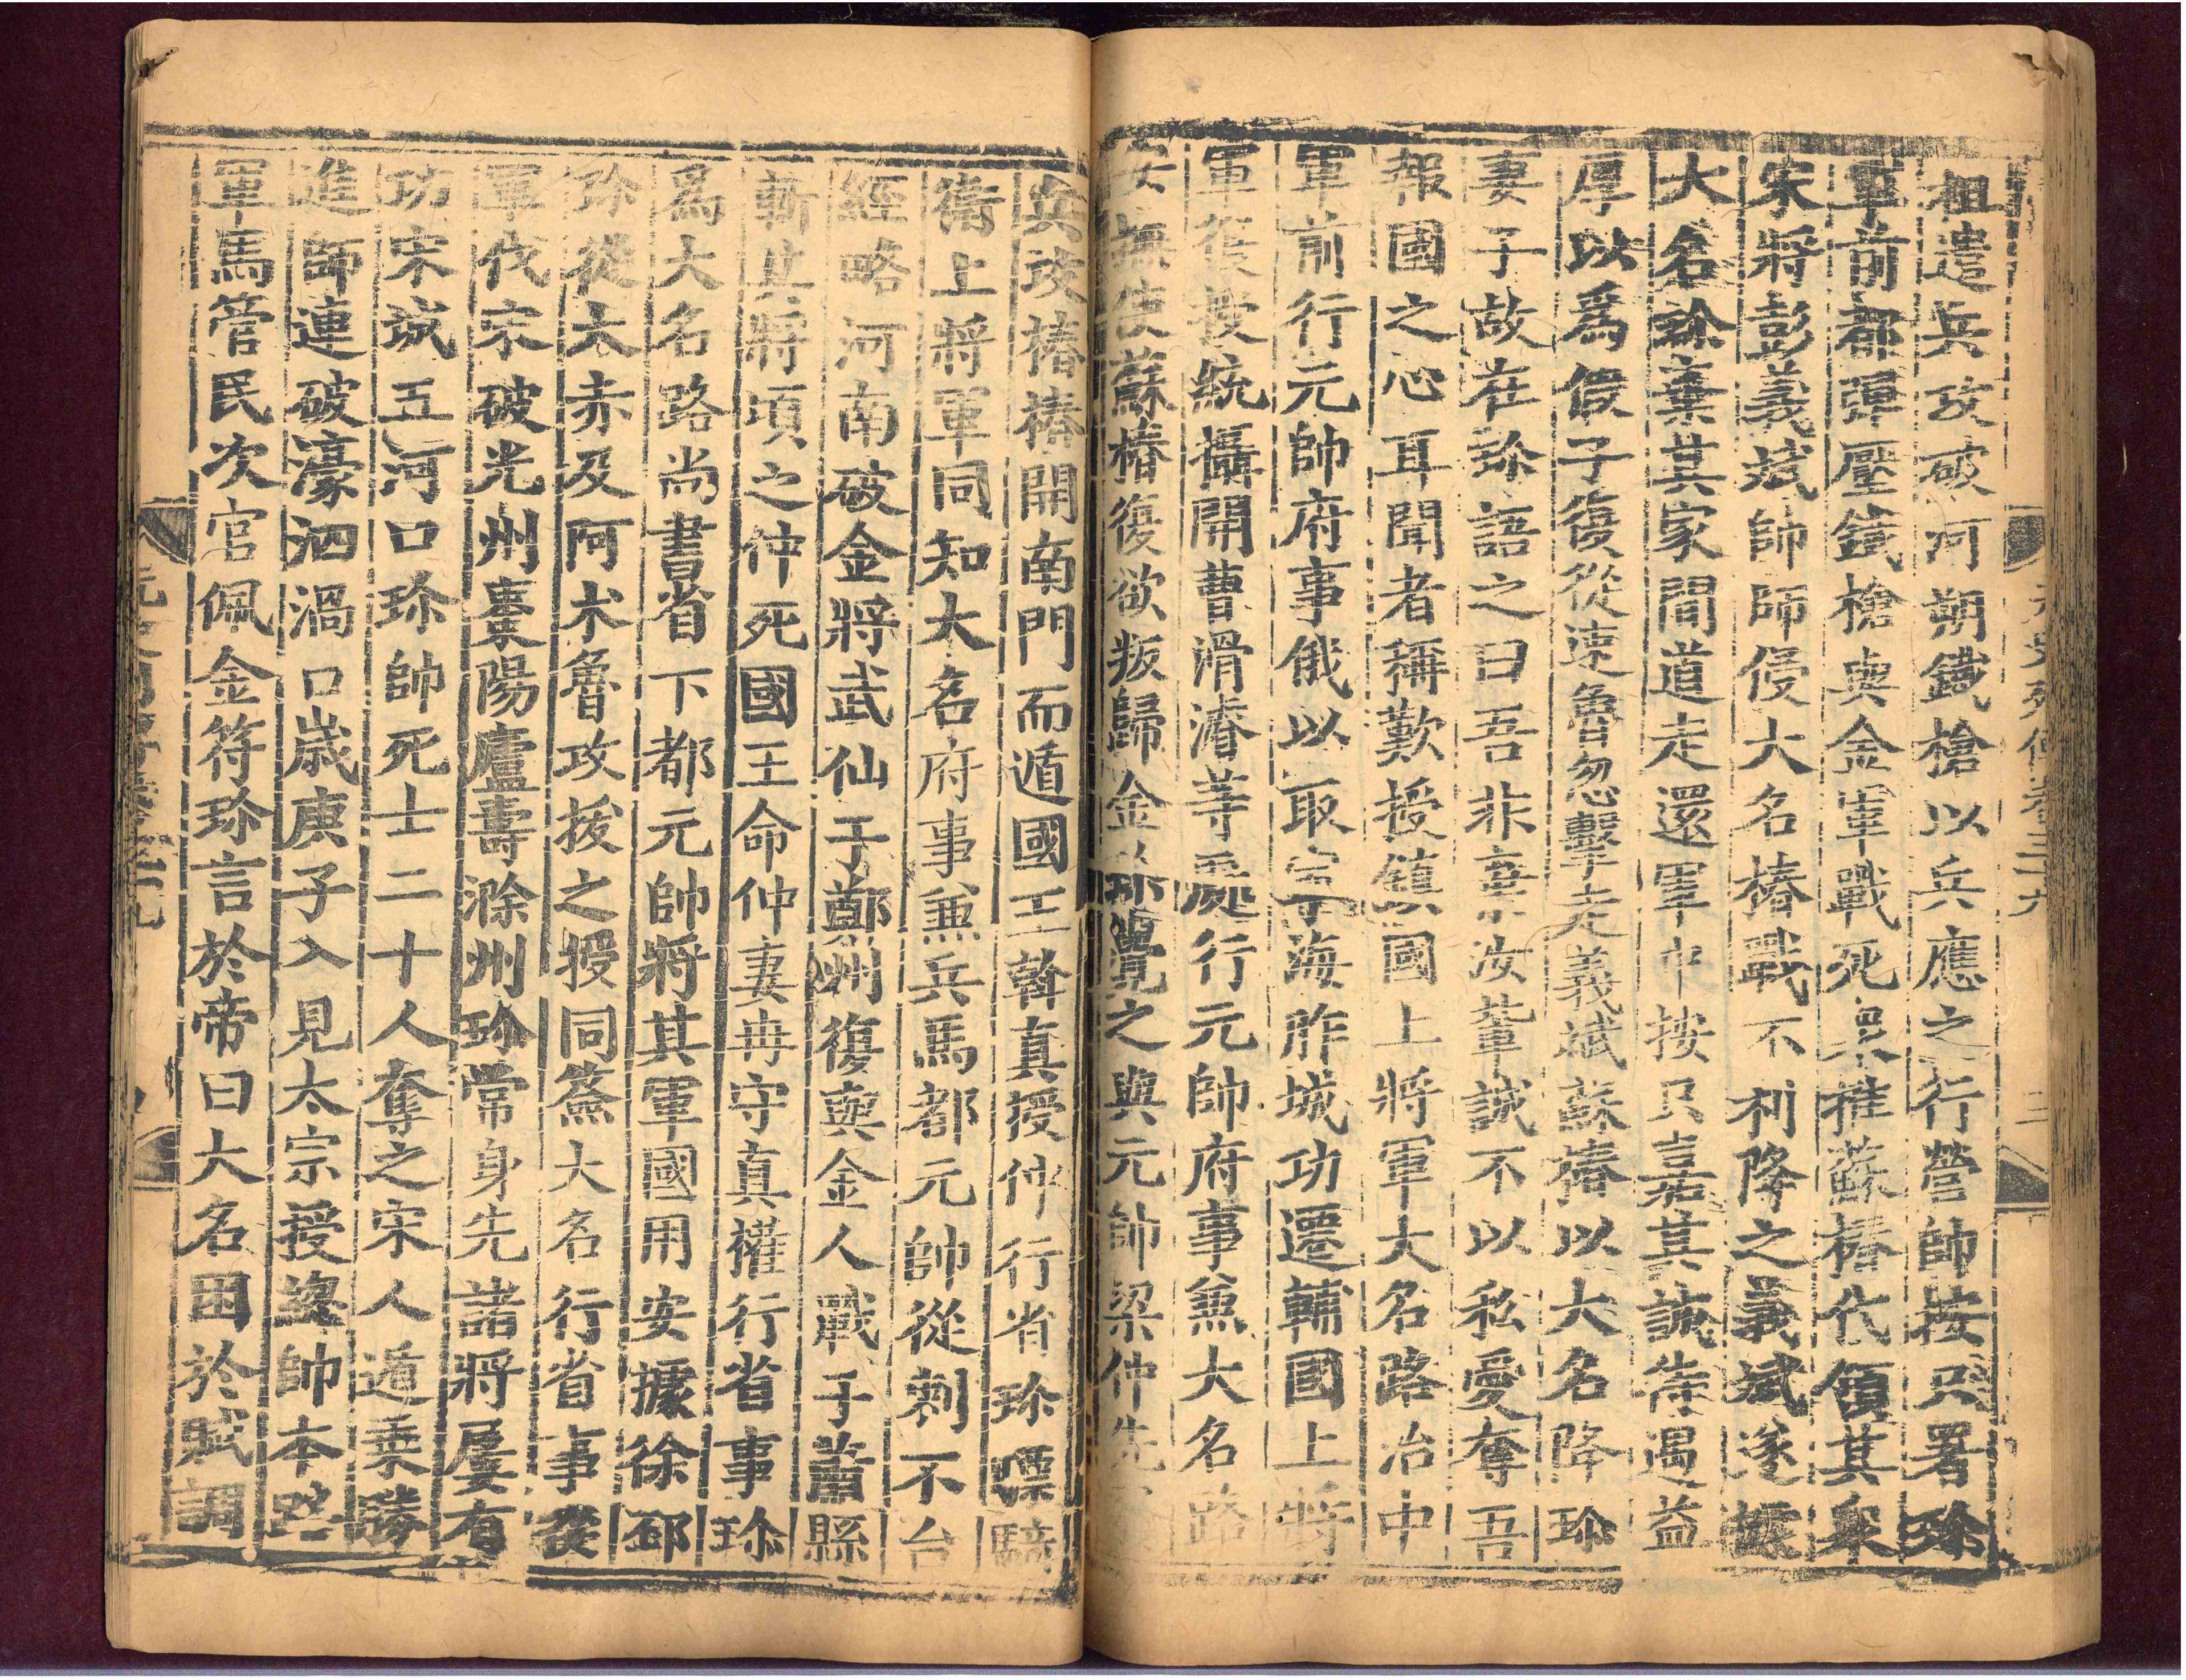 祖遣兵攻破河朔鐵槍以兵應之行營帥按只署珍
軍前都彈壓鐵槍與金軍戰死衆推蘇椿代領其衆
宋將彭義斌帥師侵大名椿戰不利降之義斌遂據
大名珍棄其家間道走還軍中按只嘉其誠待遇益
厚以爲假子復從速魯忽擊走義斌蘇椿以大名降珍
妻子故在珍語之曰吾非棄汝輩誠不以私愛奪吾
報國之心耳聞者稱歎授鎮國上將軍大名路治中
軍前行元帥府事俄以取宗海胙城功遷輔國上將
軍復授統攝開曹滑濬等處行元帥府事兼大名路
安撫使蘇椿復欲叛歸金珍覺之與元帥梁仲先
兵攻椿椿開南門而遁國王斡真授仲行省珍驃騎
衛上將軍同知大名府事兼兵馬都元帥從剌不台
經略河南破金將武仙于鄭州復與金人戰于蕭縣
斬其將項之仲死國王命仲妻冉守真權行省事珍
爲大名路尚書省下都元帥將其軍國用安據徐邳
珍從太赤及阿术魯攻拔之授同僉大名行省事從
軍伐宋破光州棗陽廬壽滁州珍常身先諸將屢有
功宋城五河口珍帥死士二十人奪之宋人遁乗勝
進師連破濠泗渦口歲庚子入見太宗授總帥本路
軍馬管民次官佩金符珍言於帝曰大名困於賦調